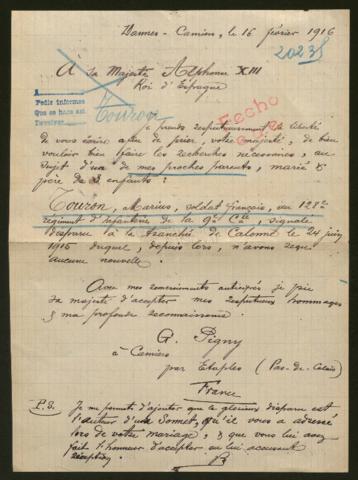 Dannes - Camiers, le 16 février 1916
20238
À sa Majesté Alphonse XIII
Roi d'Espagne
Pedir informes
Que se hara asi
Devolver
Touron
Fecho
Je prends respectueusement la liberté
de vous écrire afin de prier, votre majesté, de bien
vouloir bien faire les recherches nécessaires, au
sujet d'un de mes proches parents, marié &
père de 3 enfants :
Touron, Marius, soldat français, au 128e
régiment d'infanterie de la 9e Cie, signalé
disparu à la Tranchée de Calonne le 24 juin
1915 duquel, depuis lors, n'avons reçu
aucune nouvelle.
Avec mes remerciements anticipés je prie
sa majesté d'accepter mes respectueux hommages
& ma profonde reconnaissance.
G. Pigny
à Camiers
par Etaples (Pas-de-Calais)
France
P.S. Je me permets d'ajouter que le glorieux disparu est
l'auteur d'un Sonnet, qu'il vous a adressé
lors de votre mariage, & que vous lui avez
fait l'honneur d'accepter en lui accusant
réception.